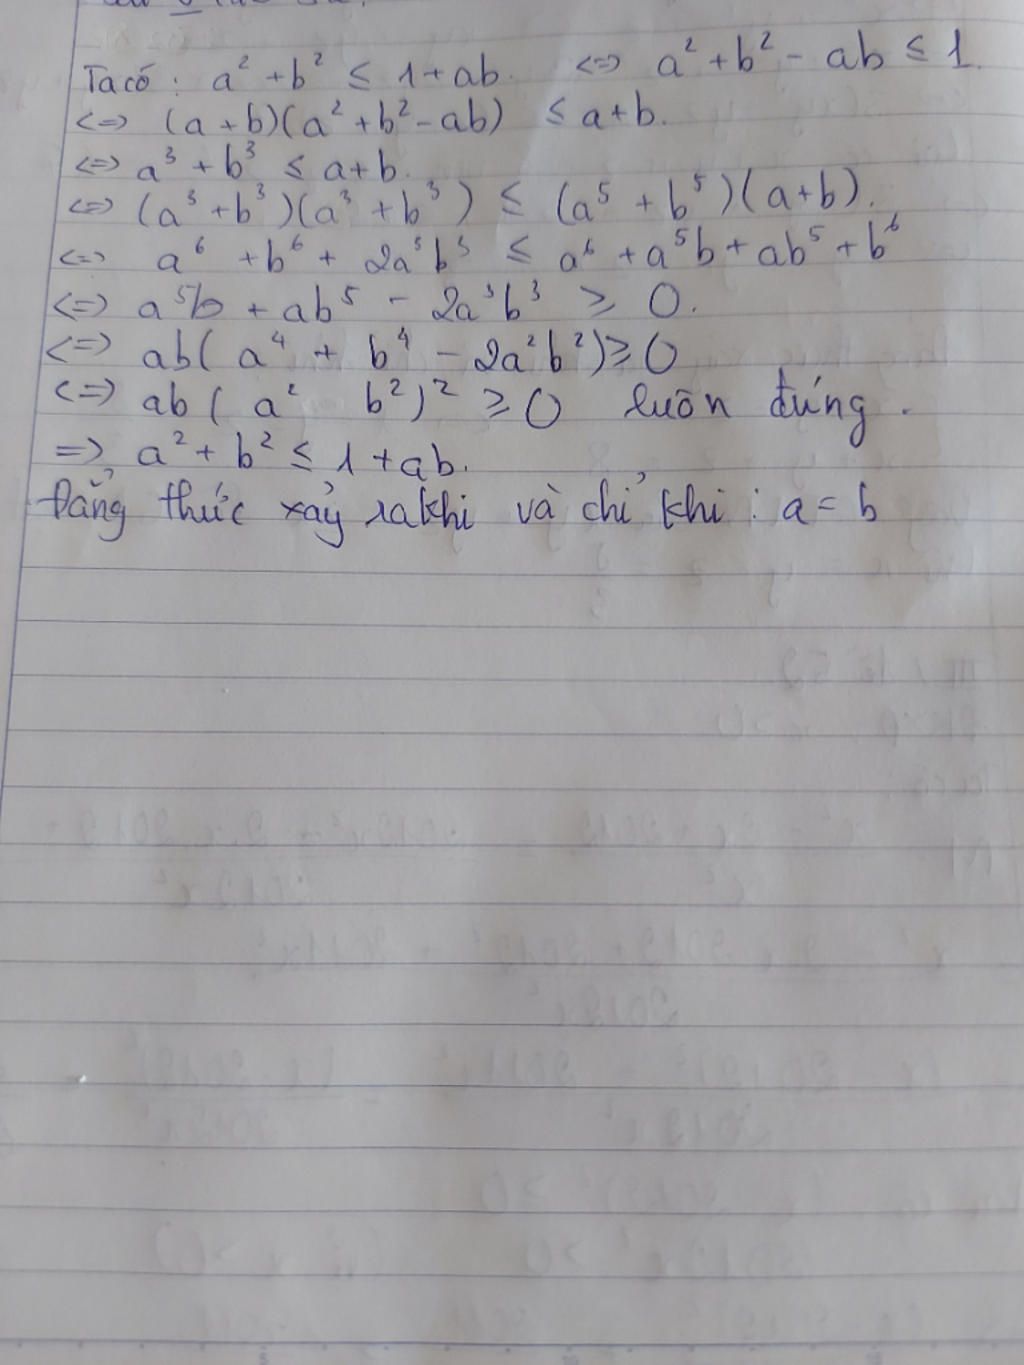 Ta có : a² + b² ≤ 1 + ab. <=> a² + b² - ab ≤ 1.
<=> (a + b)(a² + b² - ab) ≤ a + b.
<=> a³ + b³ ≤ a + b.
<=> (a³ + b³)(a³ + b³) ≤ (a⁵ + b⁵)(a + b).
<=> a⁶ + b⁶ + 2a³b³ ≤ a⁶ + a⁵b + ab⁵ + b⁶
<=> a⁵b + ab⁵ - 2a³b³ ≥ 0.
<=> ab( a⁴ + b⁴ - 2a²b²) ≥ 0
<=> ab ( a² b²)² ≥ 0 luôn đúng .
=> a² + b² ≤ 1 + ab.
Đẳng thức xảy ra khi và chỉ khi : a = b